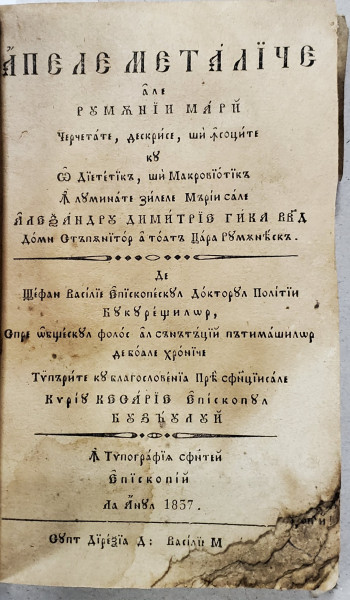 А҆ПЕЛЕ МЕТАЛЇ́ЧЕ
а҆ле
РУМѪНЇИ МАРЙ
Черчета́те, дескри́се, ши Ꙟсоци́те
ку
Ѡ Дїете́тікъ, ши Макровїо́тікъ
Ꙟ лумина́те зи́леле Мъ́рїи са́ле
А҆ЛЕѮА́НДРУ ДИМИ́ТРІЕ ГИ́КА ВВ҃Д
До́мн Стъпѫнито́р а҆ тоа́тъ Ца́ра Румѫнѣ́скъ.
Де
Ще́фан Васі́лїе Е҆пїскопе́скул До́кторул Полі́тїи
БУКУРЕ́ЩИЛѠР,
Спре ѡ҆бще́скул фоло́с а҆л съ́нътъ́ций пъти́машилѡр
де боа́ле хро́ниче
Тѵпъри́те ку благослове́нїа Прѣ сфи́нцїисале
КѴРЇУ КЕСА́РЇЕ Е҆ПЇ́СКОПУЛ
БУЗЪ́УЛУЙ
Ꙟ Тѵпогра́фїѧ сфи́нтей
Е҆пїскопїй
Ла А҆нул 1837.
Су́пт Дїре́кцїа Д: Васі́лїе М